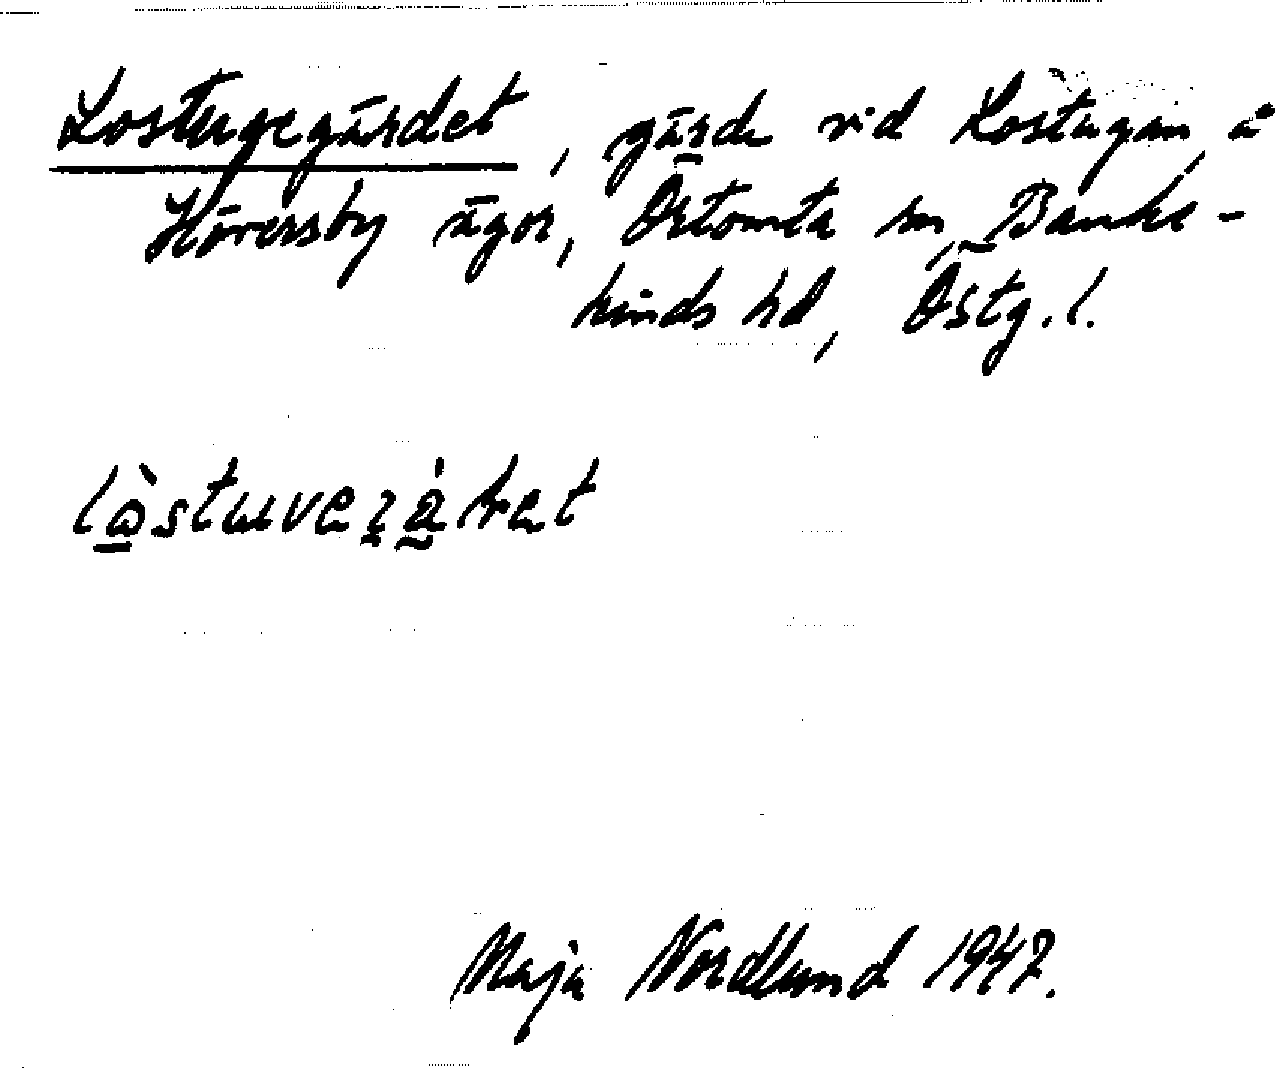 Lostugegärdet, gärde vid Lostugan, å
Höversby ägor, Östomta sn, Banke-
kinds hd, Östg. l.
Maja Nordlund 1947.